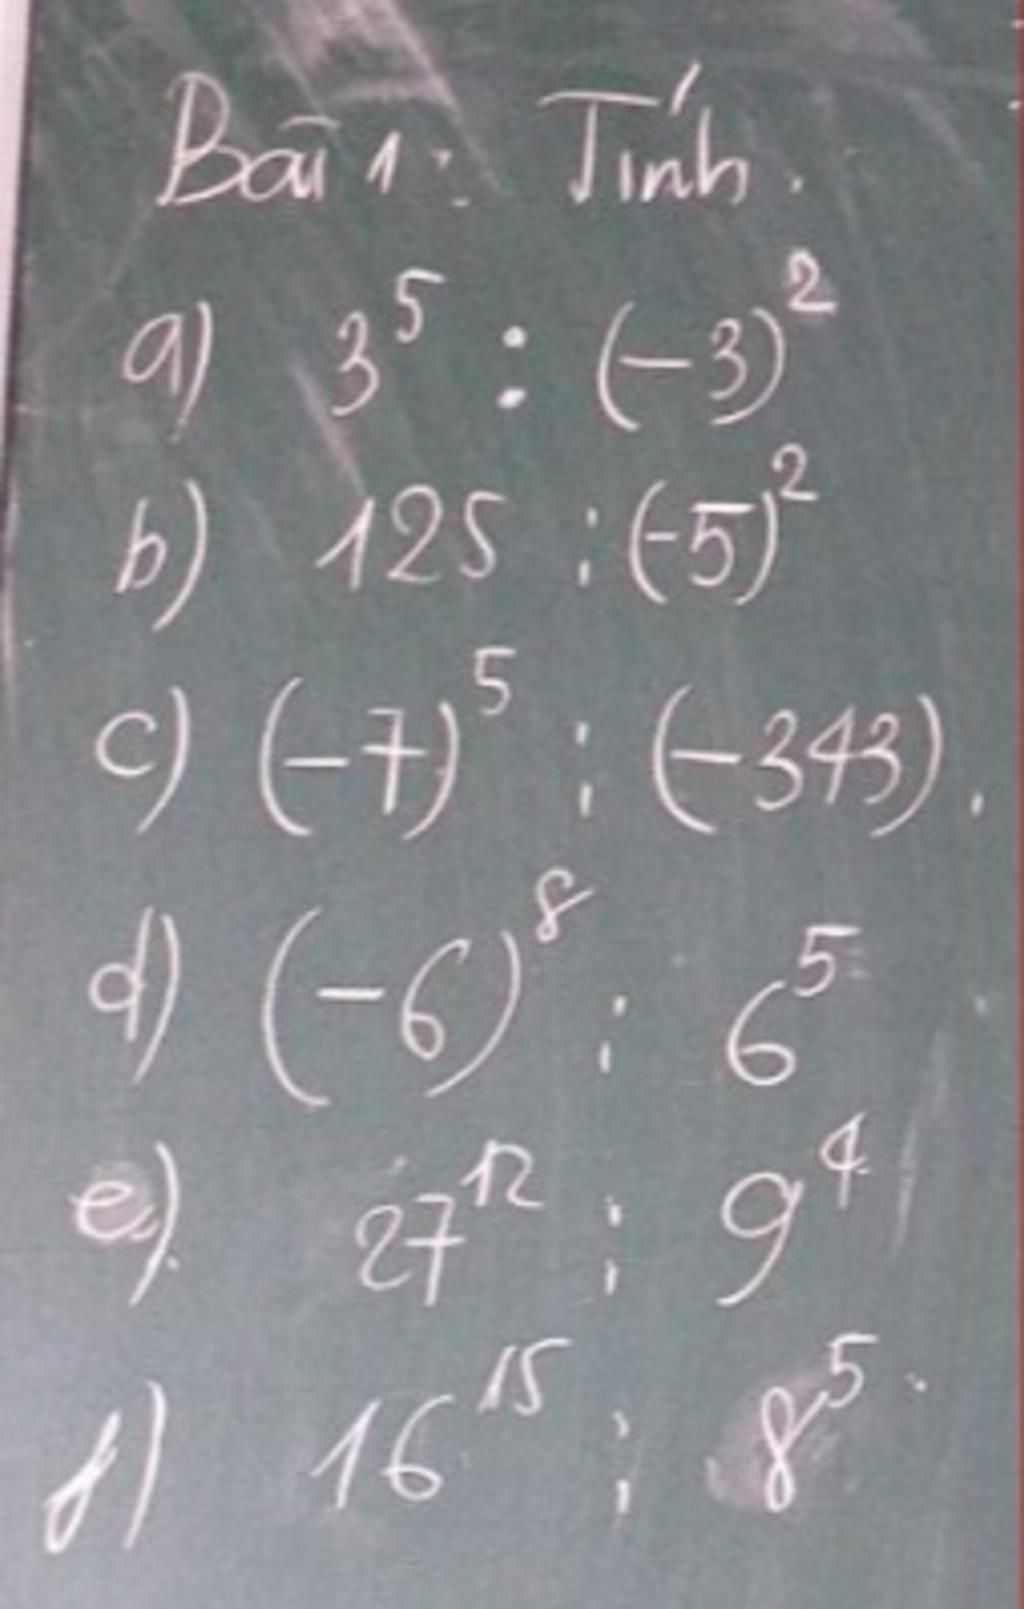 Bài 1: Tính.
a) 3⁵ : (-3)²
b) 125 : (-5)²
c) (-7)⁵ : (-343).
d) (-6)⁸ : 6⁵
e) 27¹² : 9⁴
f) 16¹⁵ : 8⁵